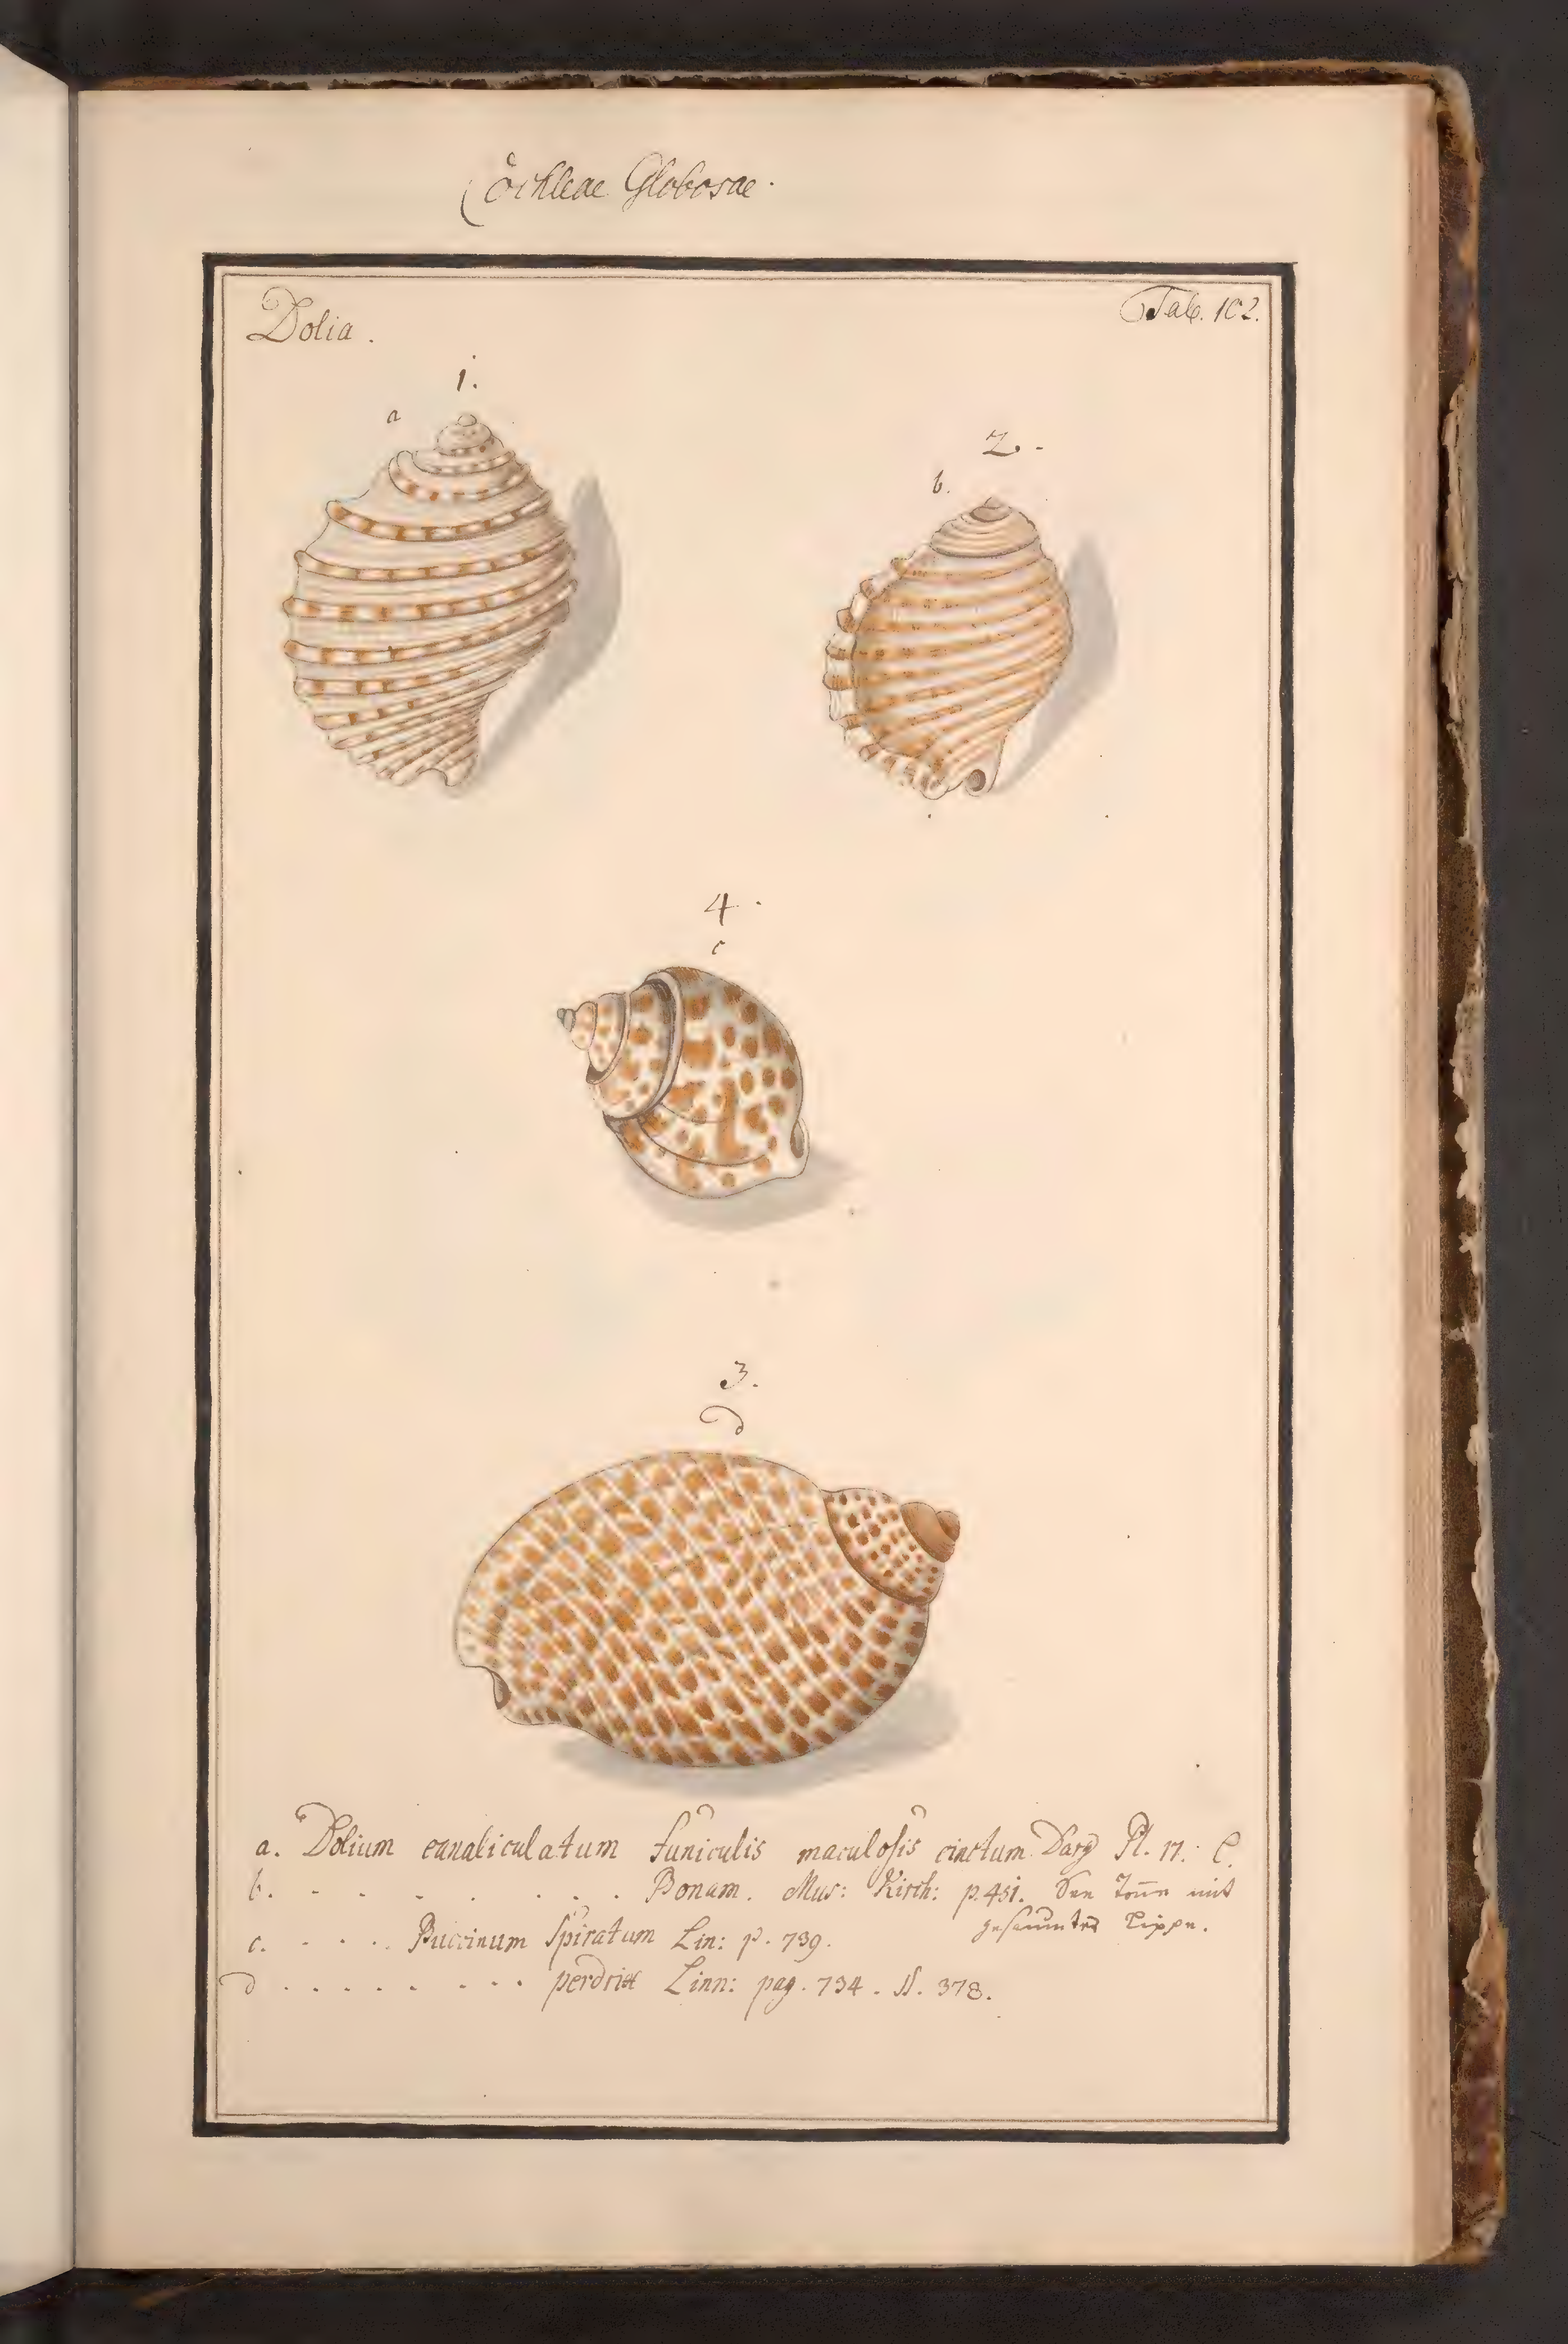 Cochleae Globosae.
Dolia.
Tab. 102.
1.
a
2.
b.
4.
c
3.
d
a. Dolium canaliculatum funiculis maculosis cinctum Pl. 17. C.
b. . . . . . . . Bonam. Mus: Kirch: p. 451. mit
Lippe.
c. . . . . Buccinum Spiratum Lin: p. 739.
d . . . . . . . . perdrix Linn: pag. 734. 378.